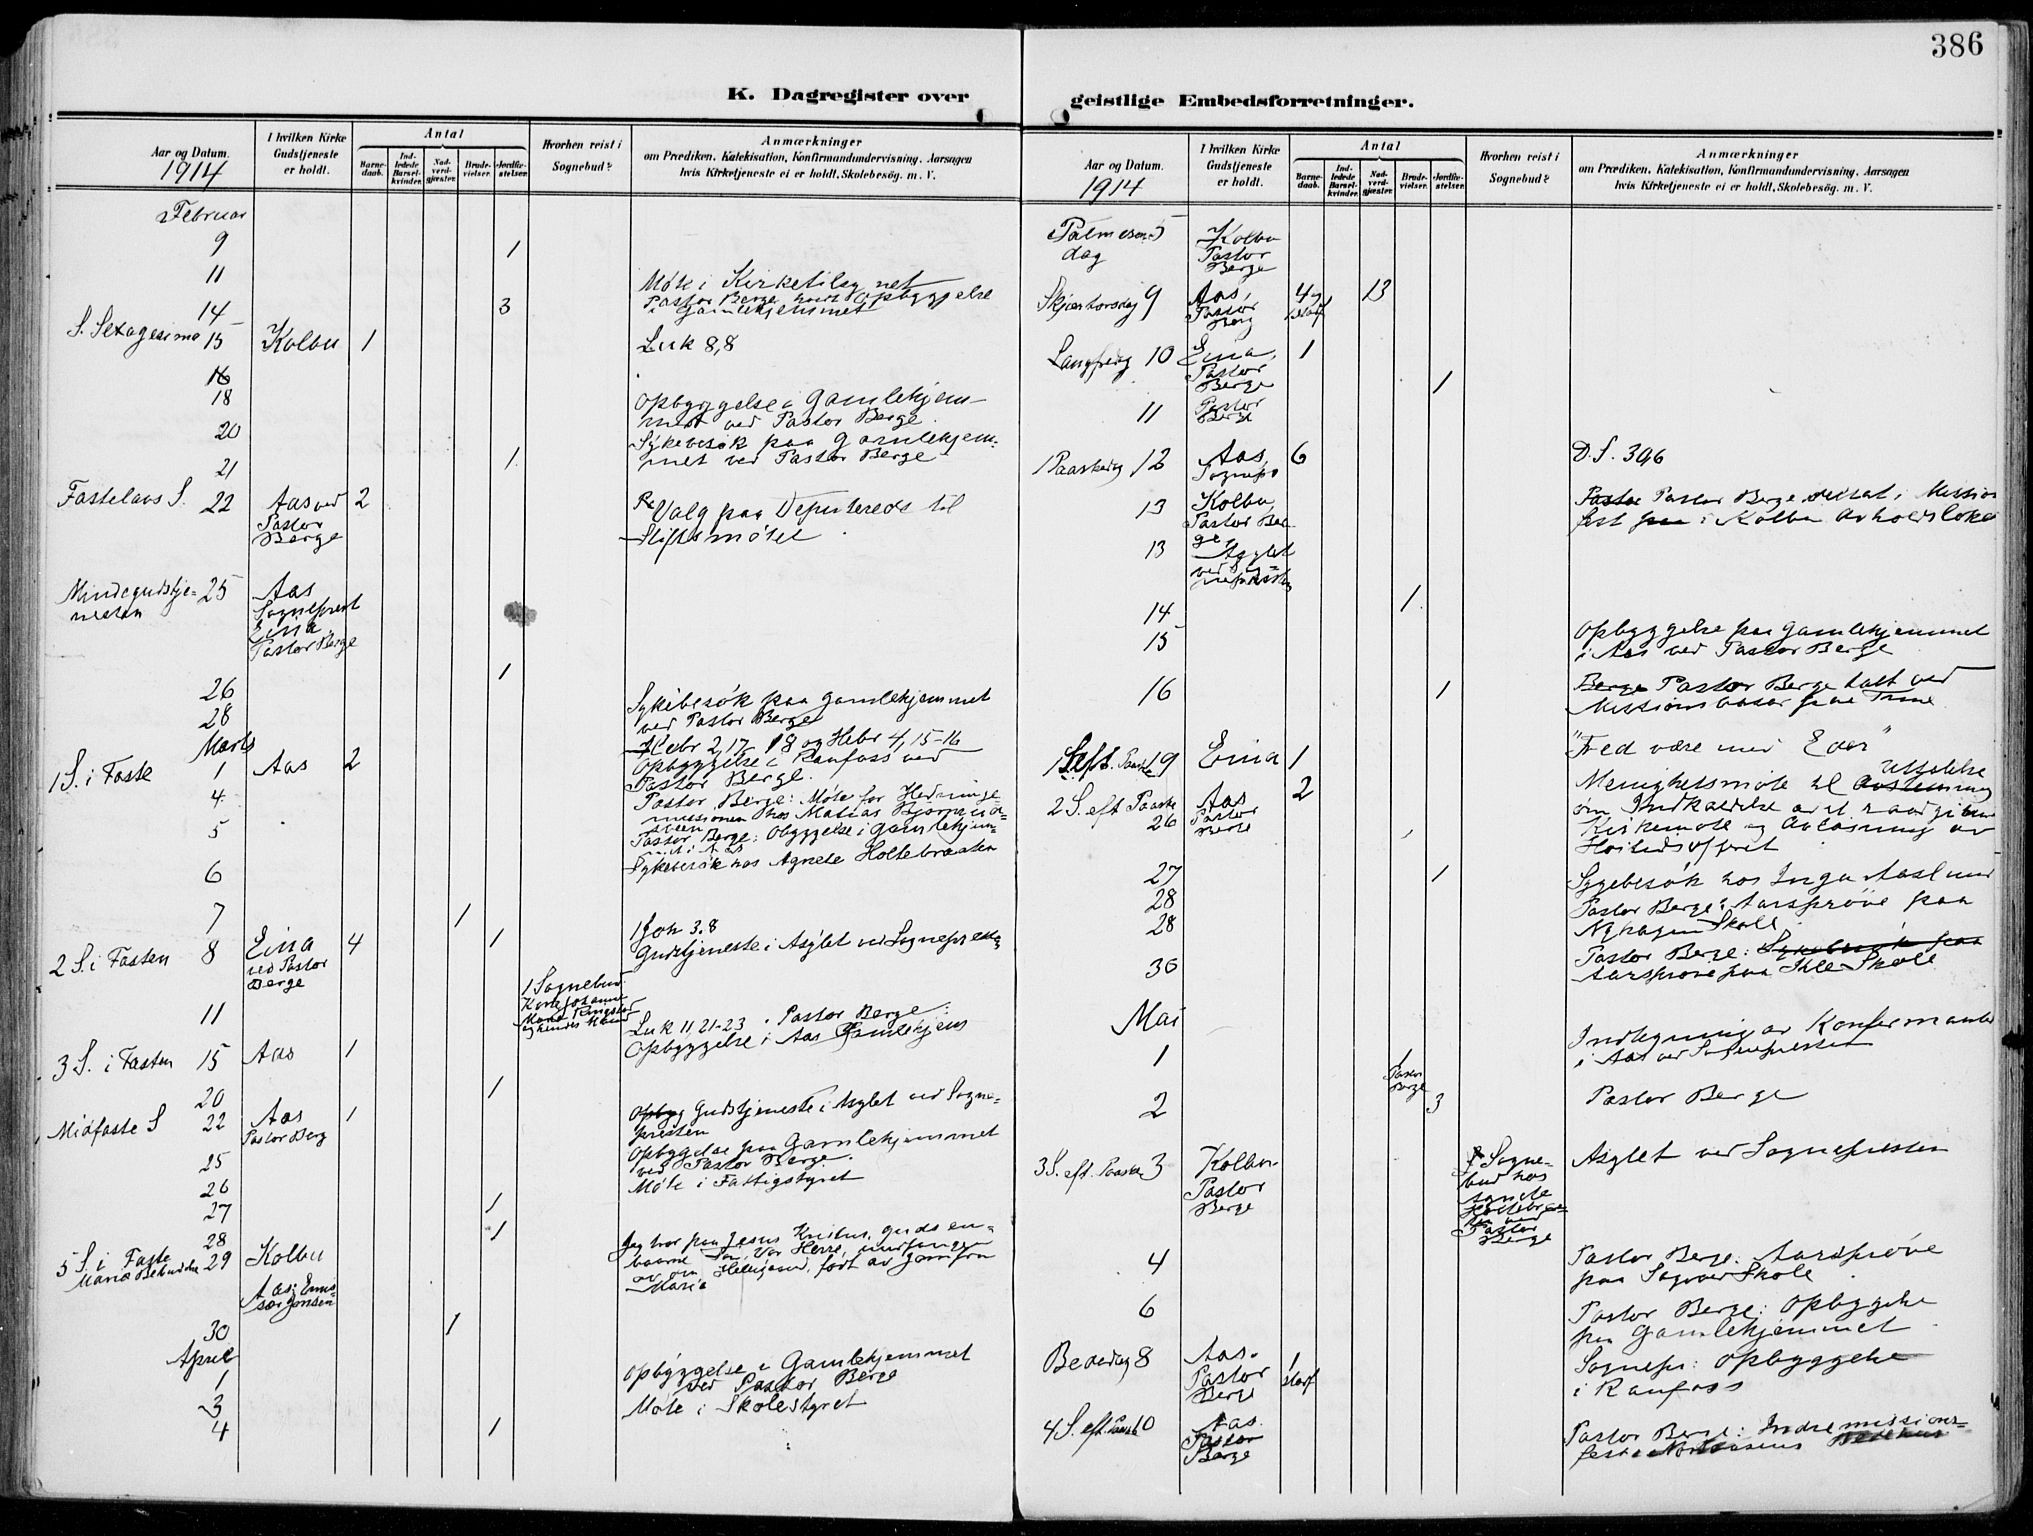 386
K. Dagregister over
Aar og Datum.
1914
I hvilken Kirke
Gudstjeneste
er holdt.
Antal
Barne-
daab.
Ind-
ledede
Barsel-
kvinder.
Nad-
verd-
gjæster.
Brude-
vielser.
Jordfæ-
stelser.
Hvorhen reist i
Sognebud?
Anmærkninger
om Prædiken, Katekisation, Konfirmandundervisning, Aarsagen
hvis Kirketjeneste ei er holdt, Skolebesøg. m. V.
Februar
9 1
11 Møte i Kirketilsynet
Pastor Berge holdt Opbyggelse
14 3 i Gamlehjemmet
S. Sexagesima 15 Kolbu 1 Luk 8,8
16
18 Opbyggelse i Gamlehjem-
met ved Pastor Berge.
20 Sykebesøk paa Gamlehjem-
21 1 met ved Pastor Berge
Fastelavns S. 22 Aas ved 2 Valg paa Deputereds til
Pastor
Berge
Stiftsmøtet.
Mindegudstje- 25 Aas
nesten
Sogneprest
Eina,
Pastor Berge
26 1
28 Sykebesøk paa Gamlehjemmet
ved Pastor Berge
Marts
Hebr 2,17-18 og Hebr 4,15-16
1 S. i Faste 1 Aas 2 Opbyggelse i Raufoss ved
Pastor Berge.
4 Pastor Berge: Møte for Hedninge-
missionen hos Matias
5 Pastor Berge: Obyggelse i Gamlehjem-
met i Aas
6 Sykebesøk hos Agnete Holtebraaten
7 1
2 S. i Fasten 8 Eina 4 1 1 Joh 3.8
ved Pastor
Berge
Gudstjeneste i Asylet ved Sognepresten
11 1 Sognebud
Luk 11 21-23. Pastor Berge:
Opbyggelse i Aas Gamlehjem
3 S. i Fasten 15 Aas 1
20 1
Midfaste S 22 Aas 1 Opbyg Gudstjeneste i Asylet ved Sogne-
Pastor Berg
presten
25 Opbyggelse paa Gamlehjemmet
ved Pastor Berge.
26 Møte i Fattigstyret
27 1
28 1
5 S. i Faste 29 Kolbu
Mariæ Bebudelse
Jeg tror paa Jesus Kristus, Guds en-
baarne Søn, Vor Herre, undfangen
av den Helligaand, født av Jomfru
Maria
Aas: Emis-
sær Jensen
30 1
April
1 Opbyggelse i Gamlehjemmet
ved Pastor Berge
3 Møte i Skolestyret
4 1
geistlige Embedsforretninger.
Aar og Datum.
1914
I hvilken Kirke
Gudstjeneste
er holdt.
Antal
Barne-
daab.
Ind-
ledede
Barsel-
kvinder.
Nad-
verd-
gjæster.
Brude-
vielser.
Jordfæ-
stelser.
Hvorhen reist i
Sognebud?
Anmærkninger
om Prædiken, Katekisation, Konfirmandundervisning, Aarsagen
hvis Kirketjeneste ei er holdt, Skolebesøg. m. V.
Palmesøn- 5 Kolbu
dag
Pastor
Berge
Skjærtorsdag 9 Aas, 4 13
Pastor
Berg
Langfredag 10 Eina, 1
Pastor
Berge
1
11 Pastor
Berge
1 Paaskedag 12 Aas, 6 D.S. 396
Sognepr
13 Kolbu, Pastor Berge deltat i Mission
Pastor Ber-
ge,
fest i Kolbu Avholdslokal
13 Asylet
ved Sog-
nepresten
1
14
15 Opbyggelse paa Gamlehjemmet
i Aas ved Pastor Berge
16 1 Berge Pastor Berge talt ved
Missionsbasar paa Thune
1 S. eft. Paaske 19 Eina 1 "Fred være med Eder"
2 S. eft Paaske Aas 2 Menighetsmøte til Uttalelse
26 Pastor
Berge
om Indkaldelse av et raadgivende
Kirkemøte og Avløsning av
Høitidsofferet
27 1 Sygebesøk hos Inga Aaslund
28 Pastor Berge: Aarsprøve paa
28 Nyhagen Skole
Pastor Berge: Sykebesøk paa
30 Aarsprøve paa Ihle Skole
Mai
1 1 Indtegning av Konfirmanter
i Aas ved Sognepresten
Pastor
Berge
2 3 Pastor Berge
3 S. eft. Paaske 3 Kolbu. Asylet ved Sognepresten
Pastor
Berge
1 Sogne-
bud hos
Agnete
Holtebraa-
ten ved
Pastor
Berge
4 Pastor Berge: Aarsprøve
paa Sagvoll Skole
6 Pastor Berge: Opbyggelse
paa Gamlehjemmet
Bededag 8 Aas. 1 Sognepr: Opbyggelse
Pastor
Berge
i Raufoss
4 S. eft. Paaske 10 Aas.
Pastor
Berge
Pastor Berge: Indremissions-
fest i